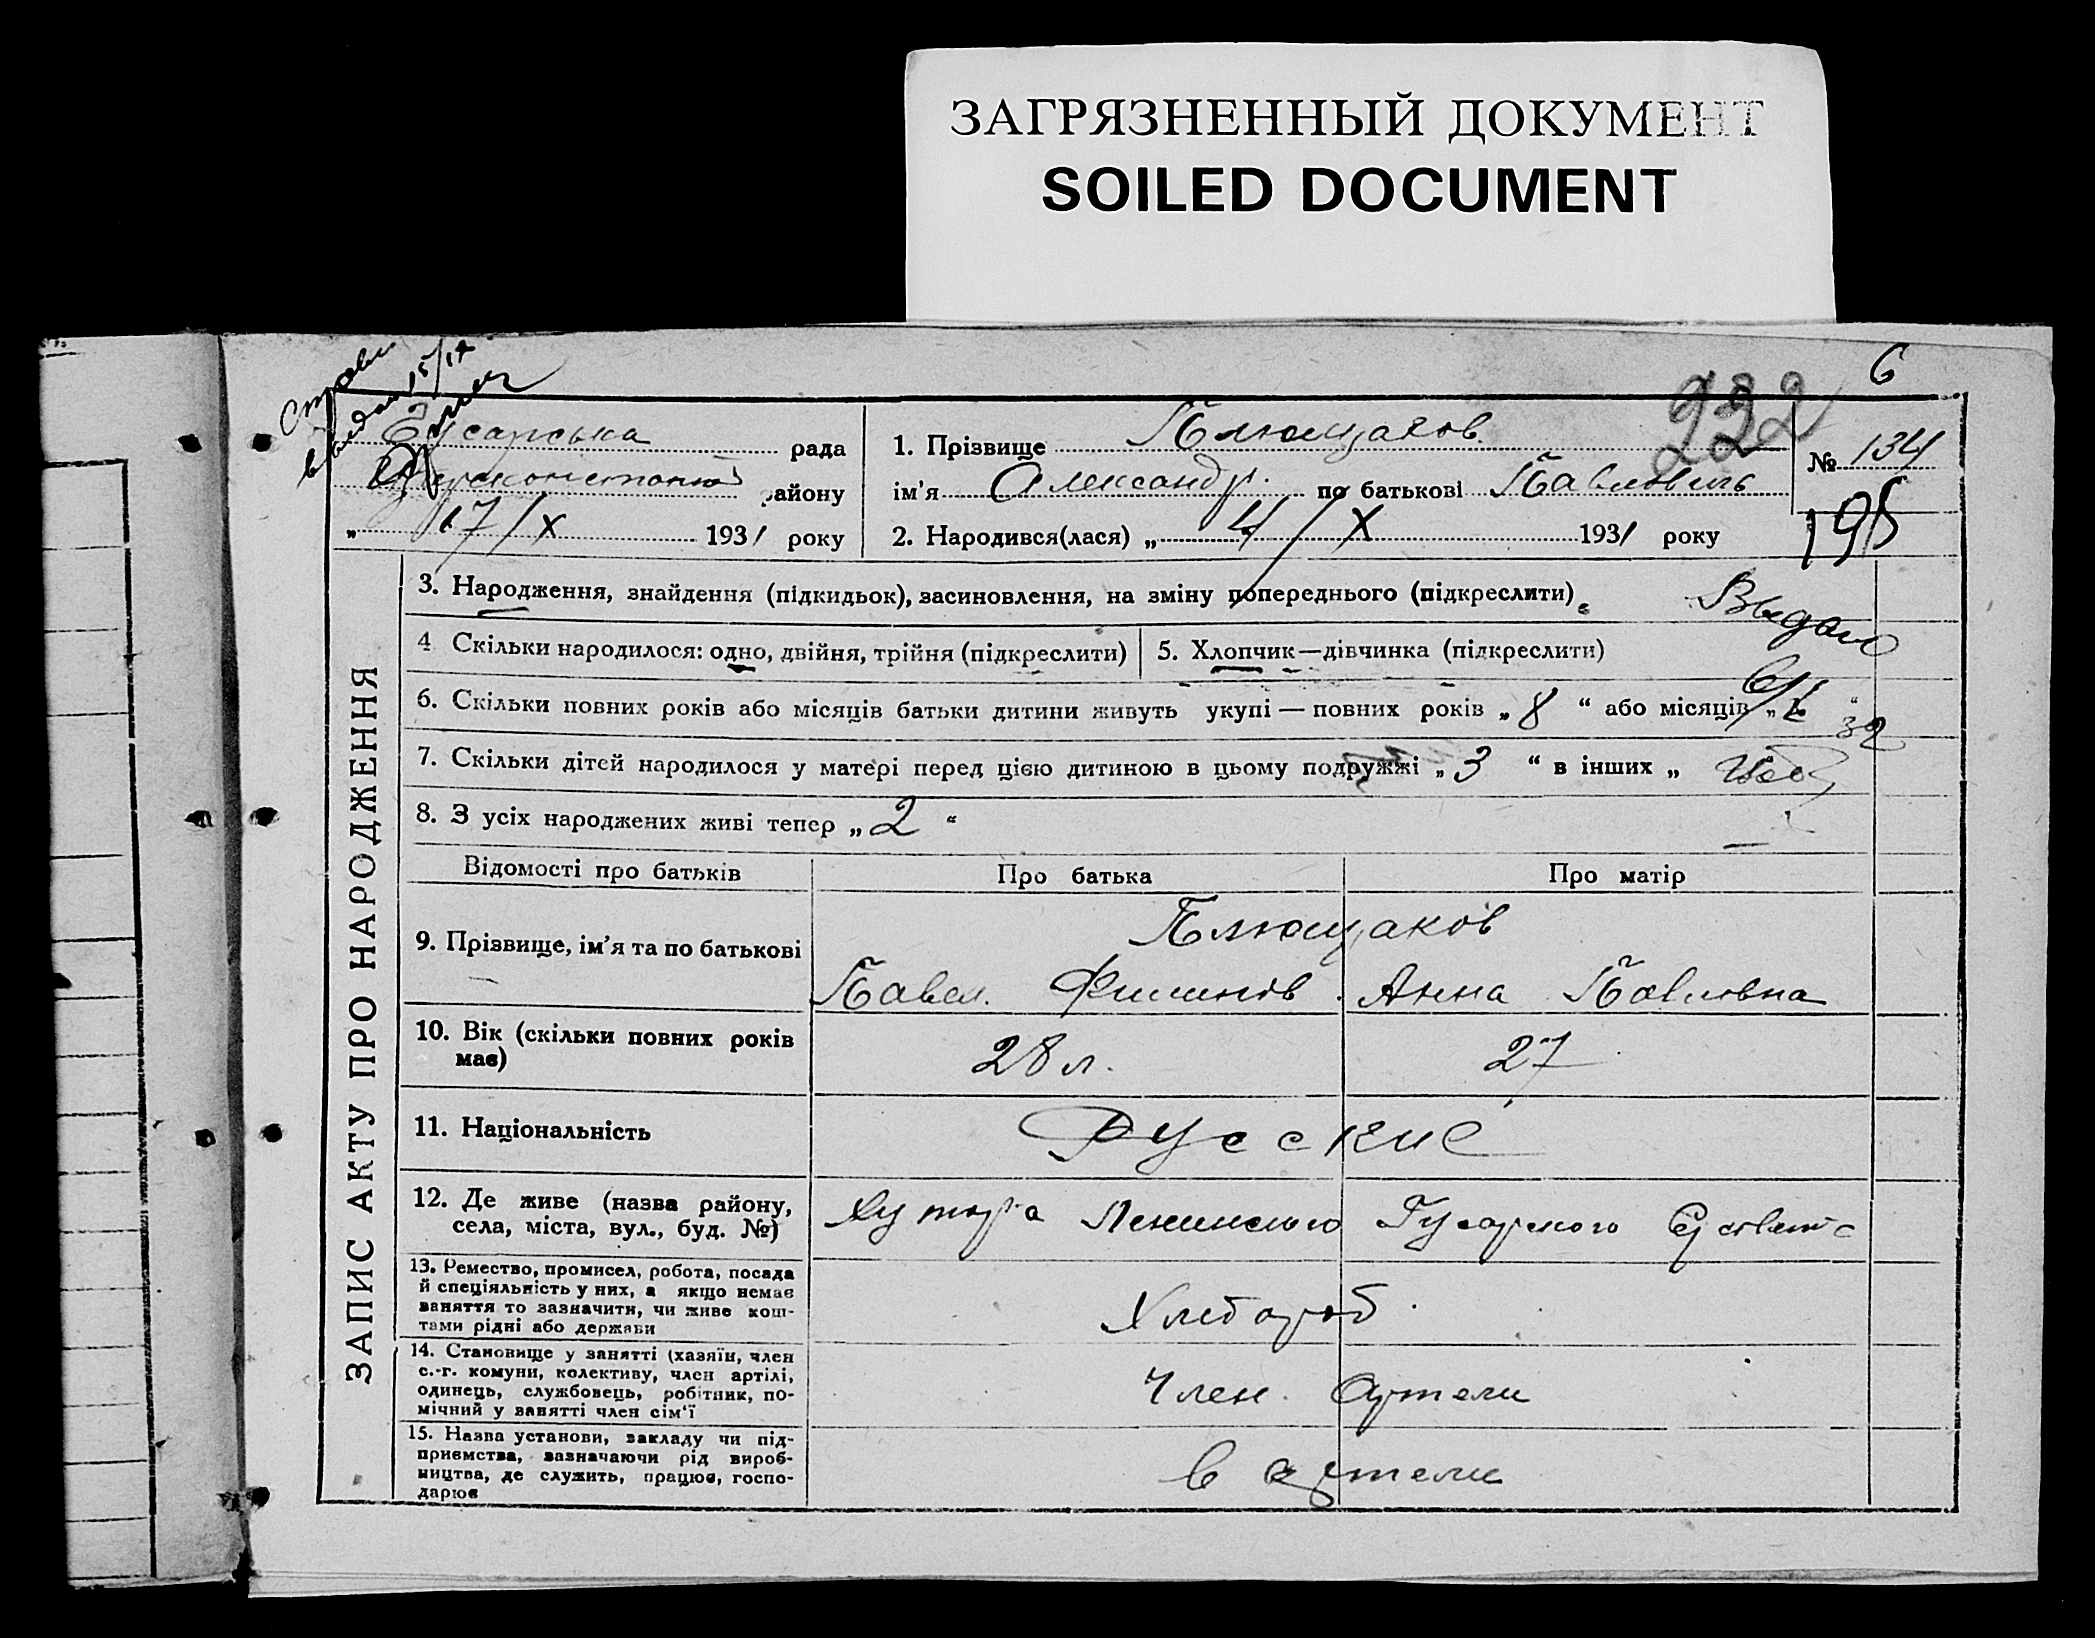 ЗАГРЯЗНЕННЫЙ ДОКУМЕНТ
SOILED DOCUMENT
6
232
Гусарська рада
району
„ 17/X 1931 року
1. Прізвище Плющаков.
ім’я Александр. по батькові Павлович
2. Народився(лася) „ 4/X 1931 року
№ 134
195
ЗАПИС АКТУ ПРО НАРОДЖЕННЯ
3. Народження, знайдення (підкидьок), засиновлення, на зміну попереднього (підкреслити)
Выдано
4 Скільки народилося: одно, двійня, трійня (підкреслити)
5. Хлопчик—дівчинка (підкреслити)
6. Скільки повних років або місяців батьки дитини живуть укупі — повних років „ 8 “ або місяців „ “
32
7. Скільки дітей народилося у матері перед цією дитиною в цьому подружжі „ 3 “ в інших „
8. З усіх народжених живі тепер „ 2 “
Відомості про батьків
Про батька
Про матір
9. Прізвище, ім’я та по батькові
Плющаков
Павел. Филипов.
Анна Павловна
10. Вік (скільки повних років
має)
28 л.
27
11. Національність
Русские
12. Де живе (назва району,
села, міста, вул., буд. №)
Хутора Ленинского Гусарского С/совета
13. Ремество, промисел, робота, посада
й спеціяльність у них, а якщо немає
заняття то зазначити, чи живе кош-
тами рідні або держави
Хлебороб
14. Становище у занятті (хазяїн, член
с.-г. комуни, колективу, член артілі,
одинець, службовець, робітник, по-
мічний у занятті член сім’ї
Член. Артели
15. Назва установи, закладу чи під-
приємства, зазначаючи рід вироб-
ництва, де служить, працює, госпо-
дарює
в артели